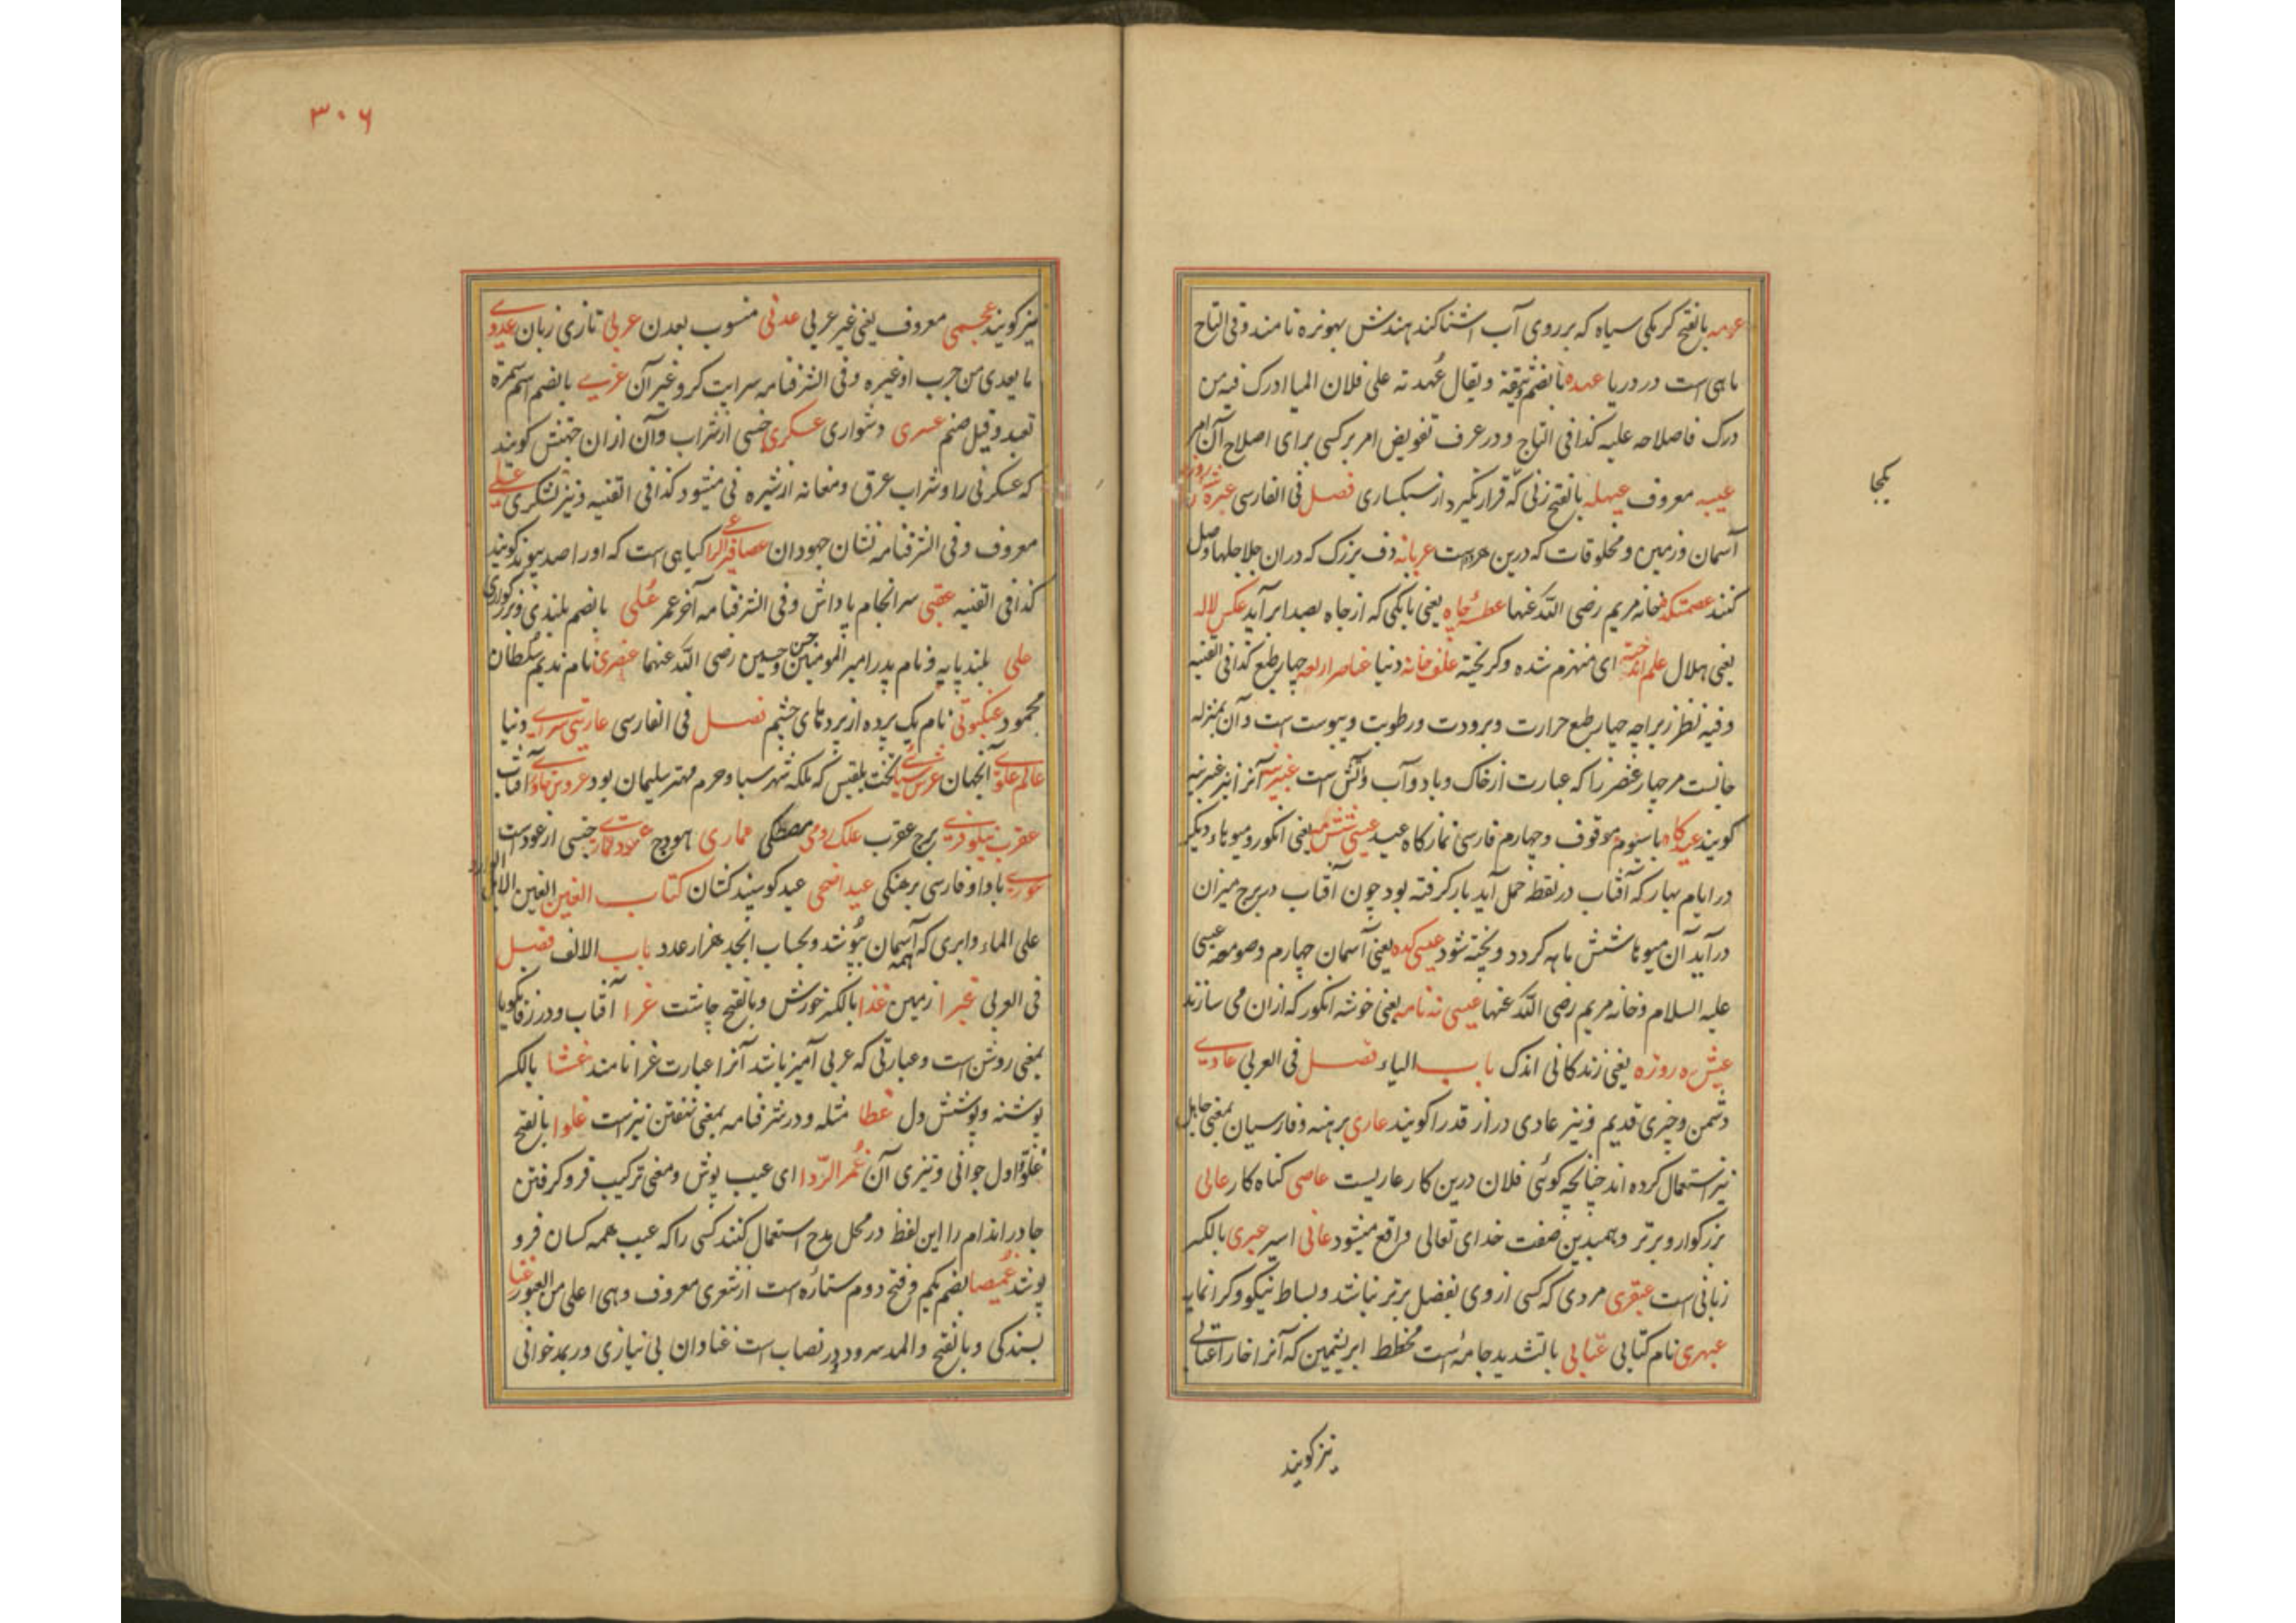 عومه بالفتح کرمکی سیاه که بر روی آب اشنا کند هندش بهونره نامند و فی التاج
ماهی است در دریا عهده بالضم وثیقة و یقال عُهدته علی فلان ای ما ادرک فیه من
درک فاصلاحه علیه کذا فی التاج و در عرف تفویض امر بر کسی برای اصلاح آن امر
عیبه معروف عیهله بالفتح زنی که قرار نگیرد از سبکساری فصل فی الفارسی
آسمان و زمین و مخلوقات که درین هر دو است عربانه دف بزرک که در ان جلاجلها وصل
کنند عصمتکده خانه مریم رضی الله عنها عطسه چاه یعنی بانکی که از چاه بصدا بر آید عکس لاله
یعنی هلال علم انداخته ای منهزم شده و کریخته علف خانه دنیا عناصر اربعه چهار طبع کذا فی القنیه
و فیه نظر زیراچه چهار طبع حرارت و برودت و رطوبت و یبوست است و آن بمنزله
جانست مر چهار عنصر را که عبارت از خاک و باد و آب و آتش است عنبرینه آنرا نیز عنبرینه
کویند عیدکاه با سیوم موقوف و چهارم فارسی نمازکاه عید عیسی ششمه یعنی انکور و میوهاء دیکر
در ایام بهار که آفتاب در نقطه حمل آید بار کرفته بود چون آفتاب در برج میزان
در آید آن میوها شش ماهه کردد و پخته شود عیسی کده یعنی آسمان چهارم و صومعه عیسی
علیه السلام و خانه مریم رضی الله عنها عیسی نه ماهه یعنی خوشه انکور که از ان می سازند
عیش ده روزه یعنی زندکانی اندک باب الیاء فصل فی العربی عادی
دشمن و چیزی قدیم و نیز عادی دراز قد را کویند عاری برهنه و فارسیان بمعنی جاهل
نیز استعمال کرده اند چنانچه کوئی فلان درین کار عاریست عاصی کناه کار عالی
بزرکوار و برتر و همبدین صفت خدای تعالی واقع میشود عانی اسیر عبری بالکسر
زبانی است عبقری مردی که کسی از وی بفضل برتر نباشد و بساط نیکو و کرانمایه
عبهری نام کتابی عتابی بالتشدید جامه است مخطط ابریشمین که آنرا خارا عتابی
نیز کویند
یکجا
۳۰۶
نیز کویند عجمی معروف یعنی غیر عربی عدنی منسوب بعدن عربی تازی زبان عدوی
ما یعدی من جرب او غیره و فی الشرفنامه سرایت کر و غیر آن عزی بالضم اسم سمرة
تعبد و قیل صنم عسری دشواری عسکری جنسی از شراب و آن از ان جهتش کویند
که عسکرنی را و شراب عرق و مغانه از شیره نی میشود کذا فی القنیه و نیز لشکری
معروف و فی الشرفنامه نشان جهودان عصافیر الراعی کیاهی است که او را صد پیوند کویند
کذا فی القنیه عقبی سرانجام پاداش و فی الشرفنامه آخر عمر عُلی بالضم بلندی و بزرکواری
علی بلند پایه و نام پدر امیر المومنین حسن و حسین رضی الله عنهما عنصری نام ندیم سلطان
محمود عنکبوتی نام یک پرده از پردهای چشم فصل فی الفارسی عاریتی سرای دنیا
عالم علوی آنجهان عرش سبای تخت بلقیس که ملکه شهر سبا و حرم مهتر سلیمان بود عروس خاوری آفتاب
عقرب نیلوفری برج عقرب علک رومی مصطکی عماری هودج عود قماری جنسی از عود است
عوری با واو فارسی برهنکی عید اضحی عید کوسپند کشان کتاب الغین الغین الابل الورد
علی الماء و ابری که همه آسمان بپوشد و بحساب ابجد هزار عدد باب الالف فصل
فی العربی غبرا زمین غذا بالکسر خورش و بالفتح چاشت غرا آفتاب و در زفانکویا
بمعنی روشن است و عبارتی که عربی آمیز باشد آنرا عبارت غرا نامند غشا بالکسر
پوشنه و پوشش دل غطا مثله و در شرفنامه بمعنی نهفتن نیز است غلوا بالفتح
غلو اول جوانی و تیزی آن غُمر الرّدا ای عیب پوش و معنی ترکیب فرو کرفتن
چادر اندام را این لفظ در محل مدح استعمال کنند کسی را که عیب همه کسان فرو
پوشد غُمیصا بضم یکم و فتح دوم ستاره است از شعری معروف و هی اعلی من العبور غنا
بسندکی و بالفتح و المد سرود در نصاب است غنا دان بی نیازی ور بمد خوانی